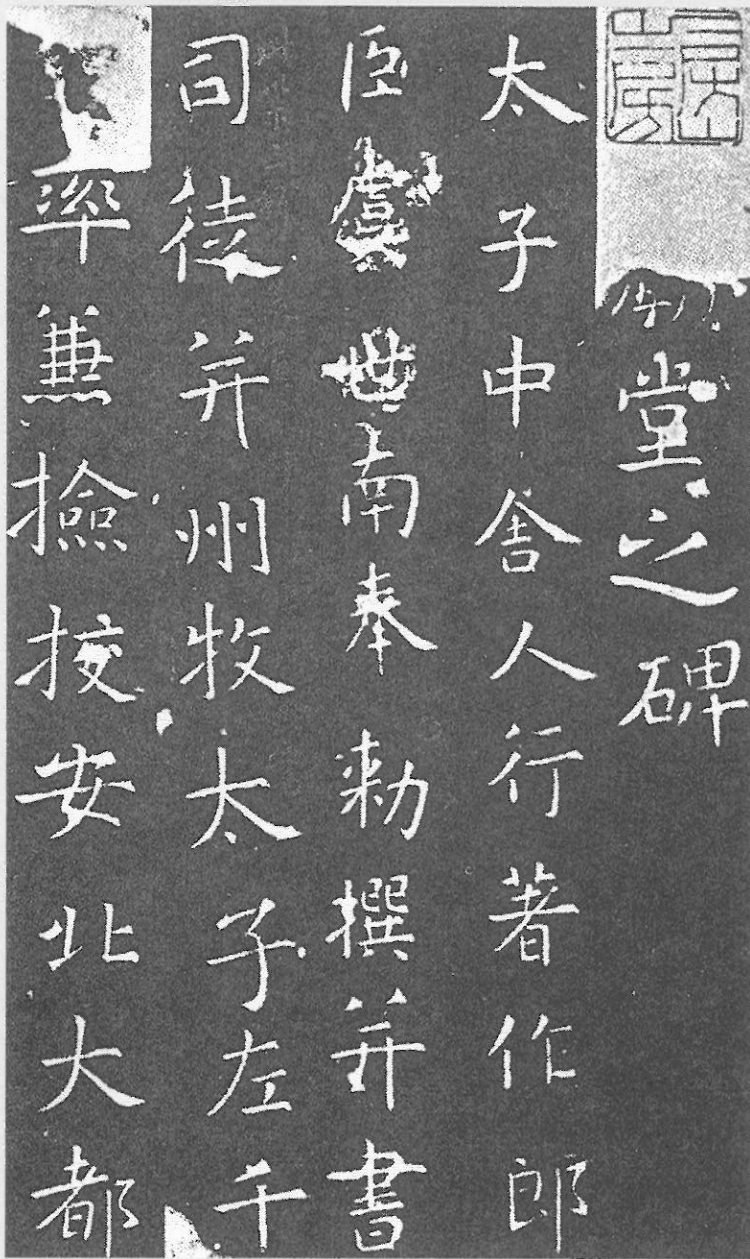 堂之碑
太子中舍人行著作郎
臣虞世南奉勑撰并書
司徒并州牧太子左千
率兼撿挍安北大都